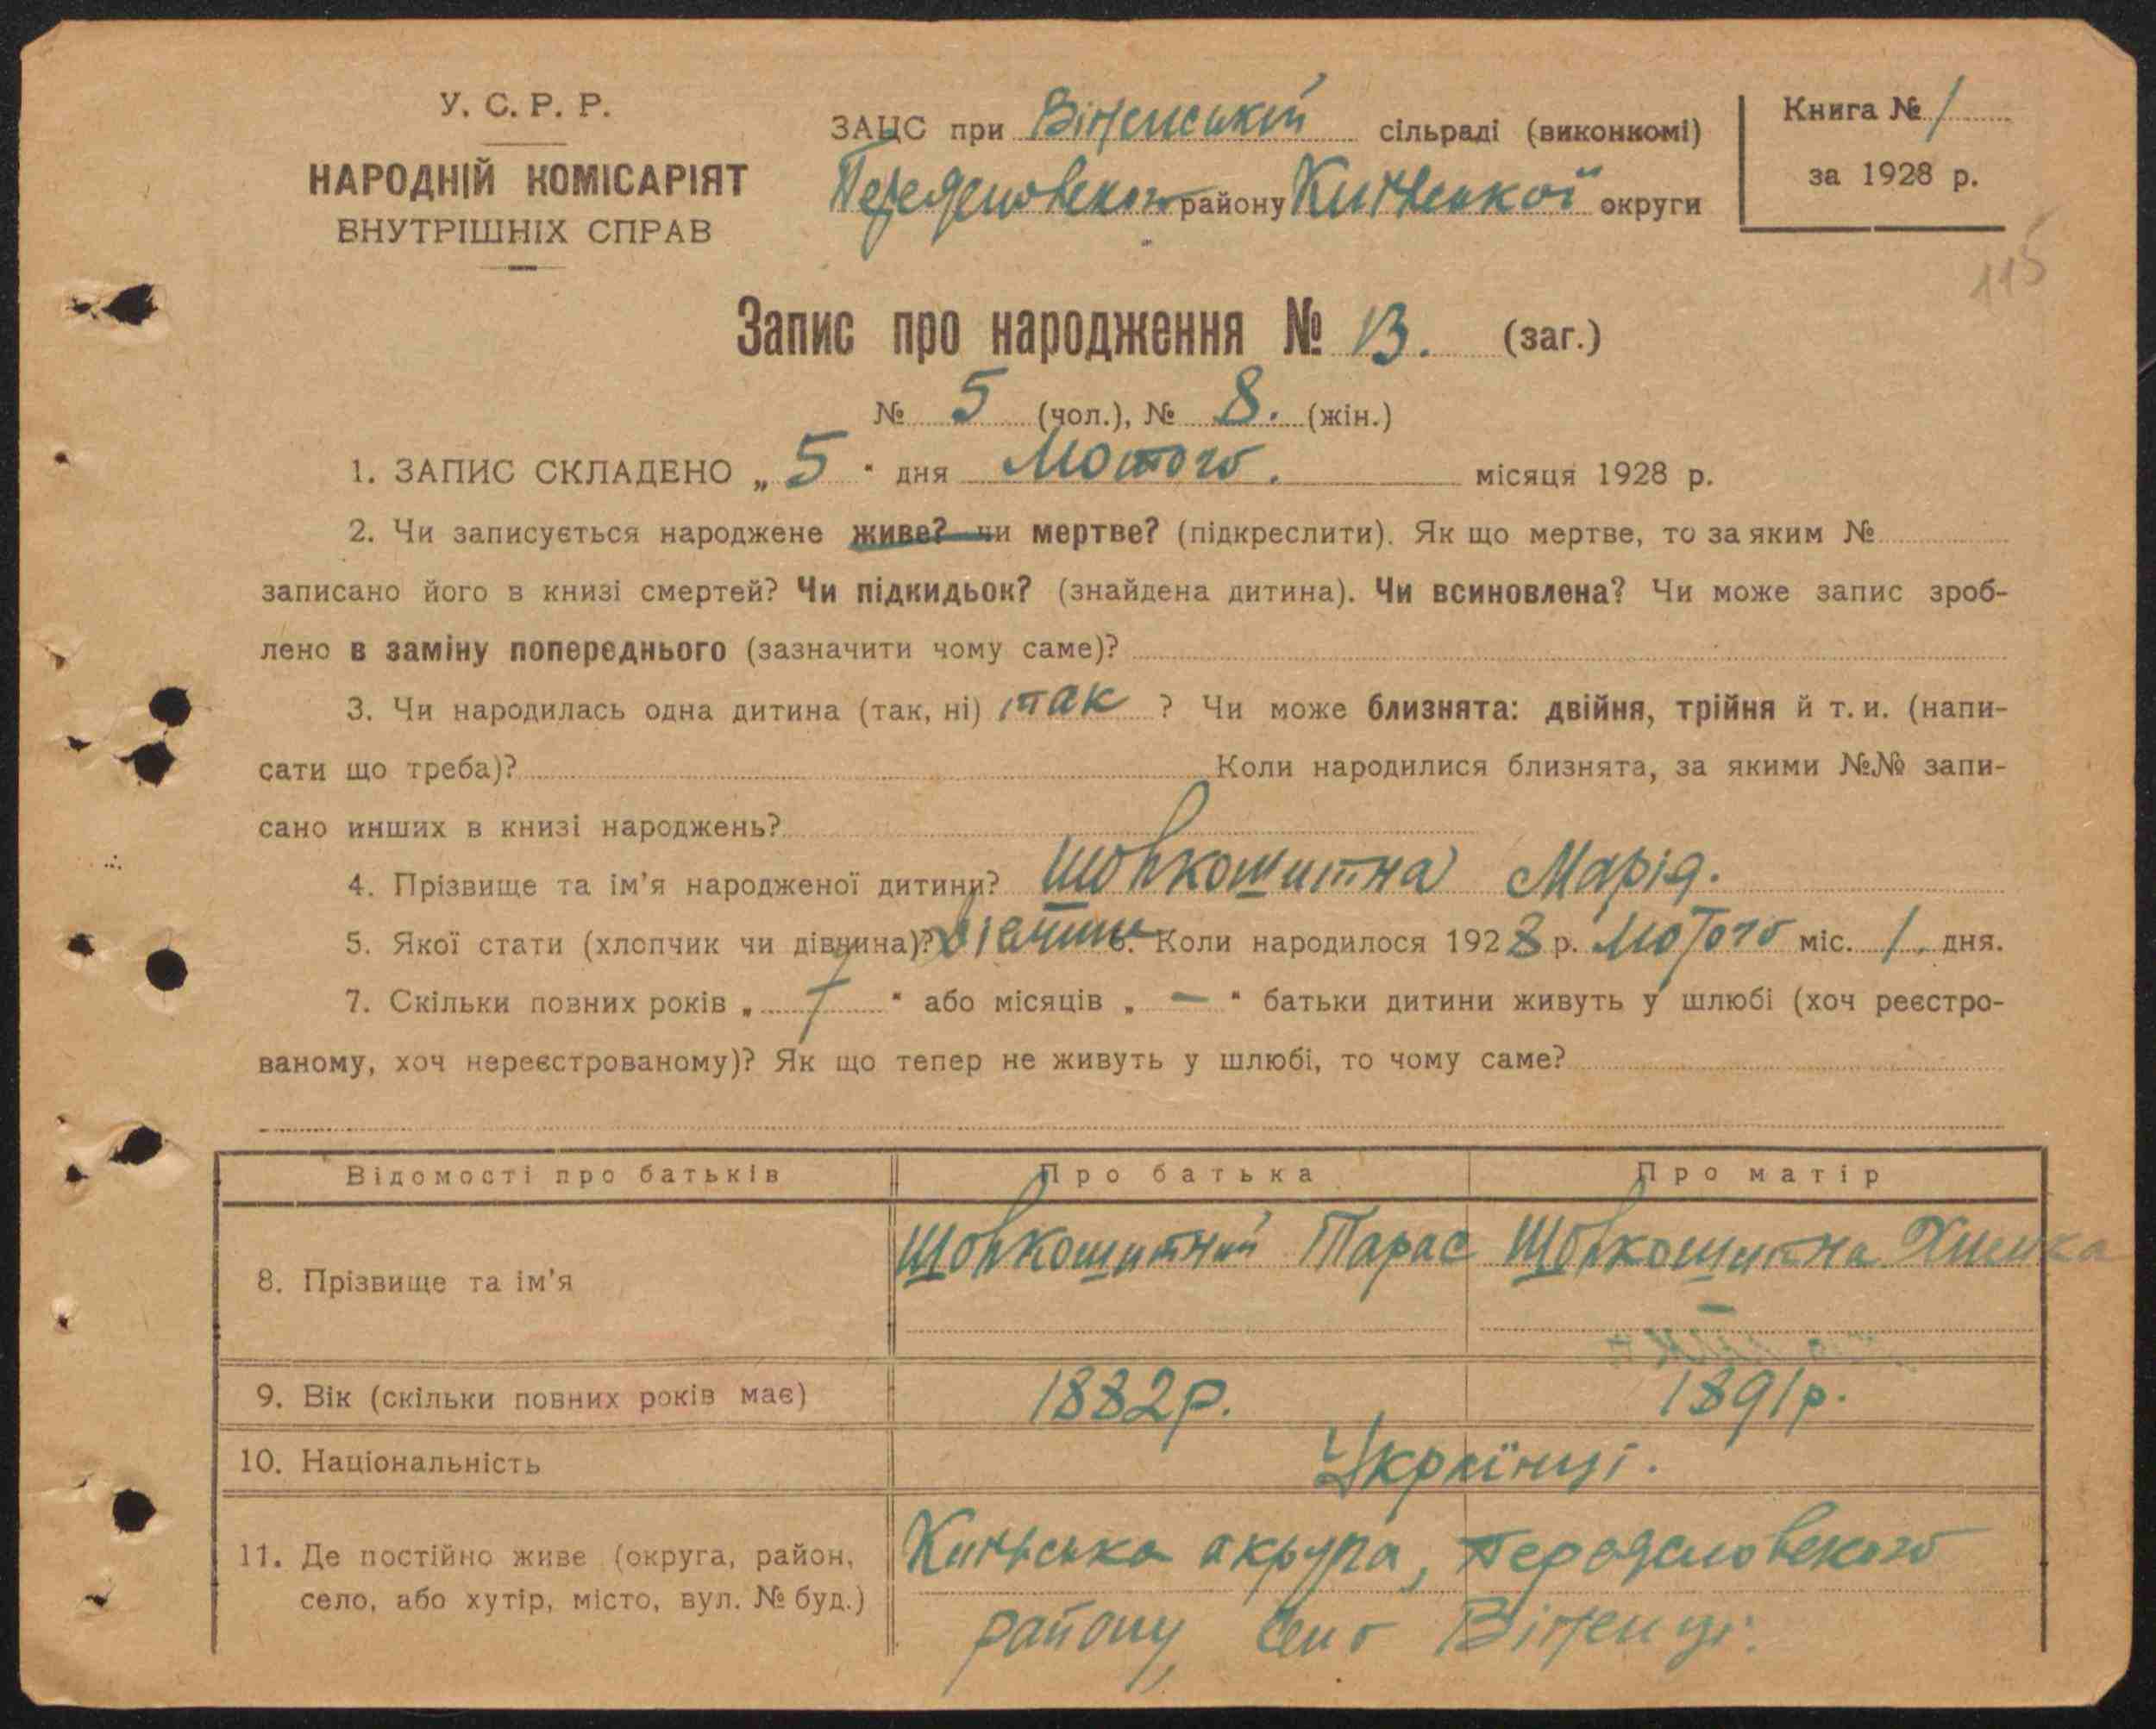 У. С. Р. Р.
НАРОДНІЙ КОМІСАРІЯТ
ВНУТРІШНІХ СПРАВ
ЗАЦС при сільраді (виконкомі)
району Київської округи
Книга № 1
за 1928 р.
115
Запис про народження № 13. (заг.)
№ 5 (чол.), № 8. (жін.)
1. ЗАПИС СКЛАДЕНО „ 5 “ дня Лютого. місяця 1928 р.
2. Чи записується народжене живе? чи мертве? (підкреслити). Як що мертве, то за яким №
записано його в книзі смертей? Чи підкидьок? (знайдена дитина). Чи всиновлена? Чи може запис зроб-
лено в заміну попереднього (зазначити чому саме)?
3. Чи народилась одна дитина (так, ні) так ? Чи може близнята: двійня, трійня й т. и. (напи-
сати що треба)? Коли народилися близнята, за якими №№ запи-
сано инших в книзі народжень?
4. Прізвище та ім'я народженої дитини? Шовкошитна Марія.
5. Якої стати (хлопчик чи дівчина)? 6. Коли народилося 1928 р. Лютого міс. 1. дня.
7. Скільки повних років „ 7 “ або місяців „ — “ батьки дитини живуть у шлюбі (хоч реєстро-
ваному, хоч нереєстрованому)? Як що тепер не живуть у шлюбі, то чому саме?
Відомості про батьків Про батька Про матір
8. Прізвище та ім'я Шовкошитний Тарас Шовкошитна
9. Вік (скільки повних років має) 1882р. 1891р.
10. Національність Українці.
11. Де постійно живе (округа, район,
село, або хутір, місто, вул. № буд.)
Київська округа,
району, село